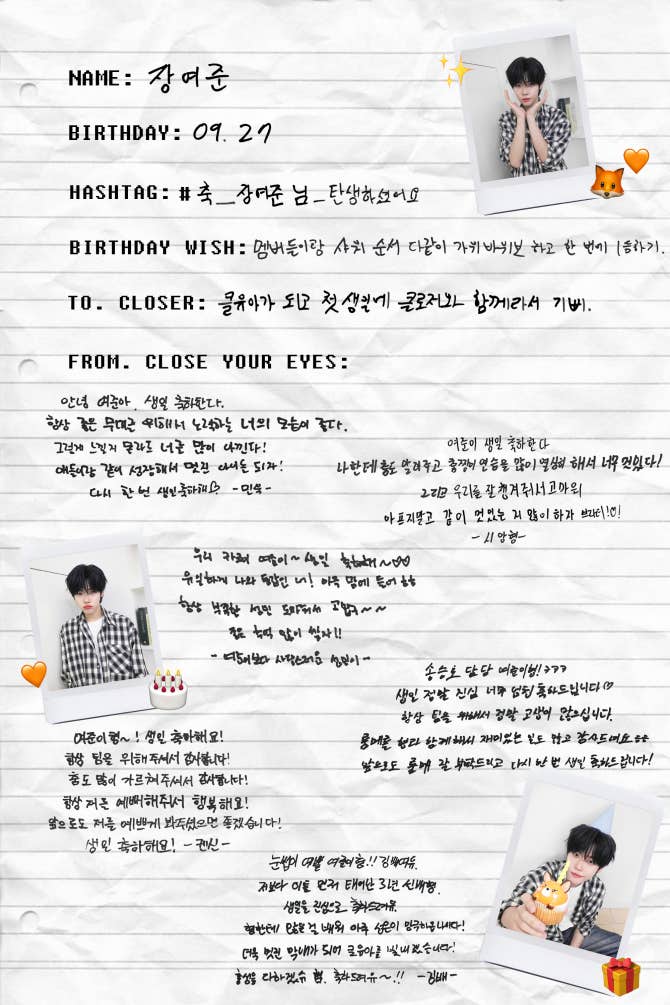 NAME: 장여준
BIRTHDAY: 09.27
HASHTAG: #축__장여준 님_탄생하셨어요
BIRTHDAY WISH: 멤버들이랑 샤워 순서 다같이 가위바위보 하고 한 번에 1등하기.
TO. CLOSER: 클유아가 되고 첫 생일에 클로저와 함께라서 기뻐.
FROM. CLOSE YOUR EYES:
안녕 여준아, 생일 축하한다.
항상 좋은 무대를 위해서 노력하는 너의 모습이 좋다.
그렇게 느낄지 몰라도 너를 많이 아낀다!
멤버들이랑 같이 성장해서 멋진 아이돌 되자!
다시 한 번 생일축하해♡ -민욱-
여준이 생일 축하한다
나한테 춤도 알려주고 춤정이 연습을 많이 열심히 해서 너무 멋있다!
그리고 우리를 잘 챙겨줘서 고마워
아프지말고 같이 멋있는 거 많이 하자 브라더!♡!
-마징시앙형-
우리 카리 여준이~ 생일 축하해~♡♡
유일하게 나와 동갑인 너! 아주 맘에 들어 ㅎㅎ
항상 부족한 성민 도와줘서 고맙구~~
좋은 추억 많이 쌓자!!
-여준이보다 사랑스러운 성민이-
송승호 담당 여준이형!ㅋㅋㅋ
생일 정말 진심 너무 넘넘 축하드립니다♡
항상 팀을 위해서 정말 고생이 많으십니다.
룸메를 형과 함께해서 재미있는 일도 많고 감사드려요 ㅎㅎ
앞으로도 룸메 잘 부탁드리고 다시 한 번 생일 축하드립니다!
여준이형~! 생일 축하해요!
항상 팀을 위해주셔서 감사합니다!
춤도 많이 가르쳐주셔서 감사합니다!
항상 저를 예뻐해주셔서 행복해요!
앞으로도 저를 예쁘게 봐주셨으면 좋겠습니다!
생일 축하해요! -켄신-
눈썹이 예쁜 여준이형!! 김배여유.
저보다 이틀 먼저 태어난 3년 선배형.
생일을 진심으로 축하드려유.
형한테 많은 걸 배워 아주 성은이 망극하옵니다!
더욱 멋진 막내가 되어 클유아를 빛내겠습니다!
효성을 다하겠슈 형. 축하드려유~.!! -김배-